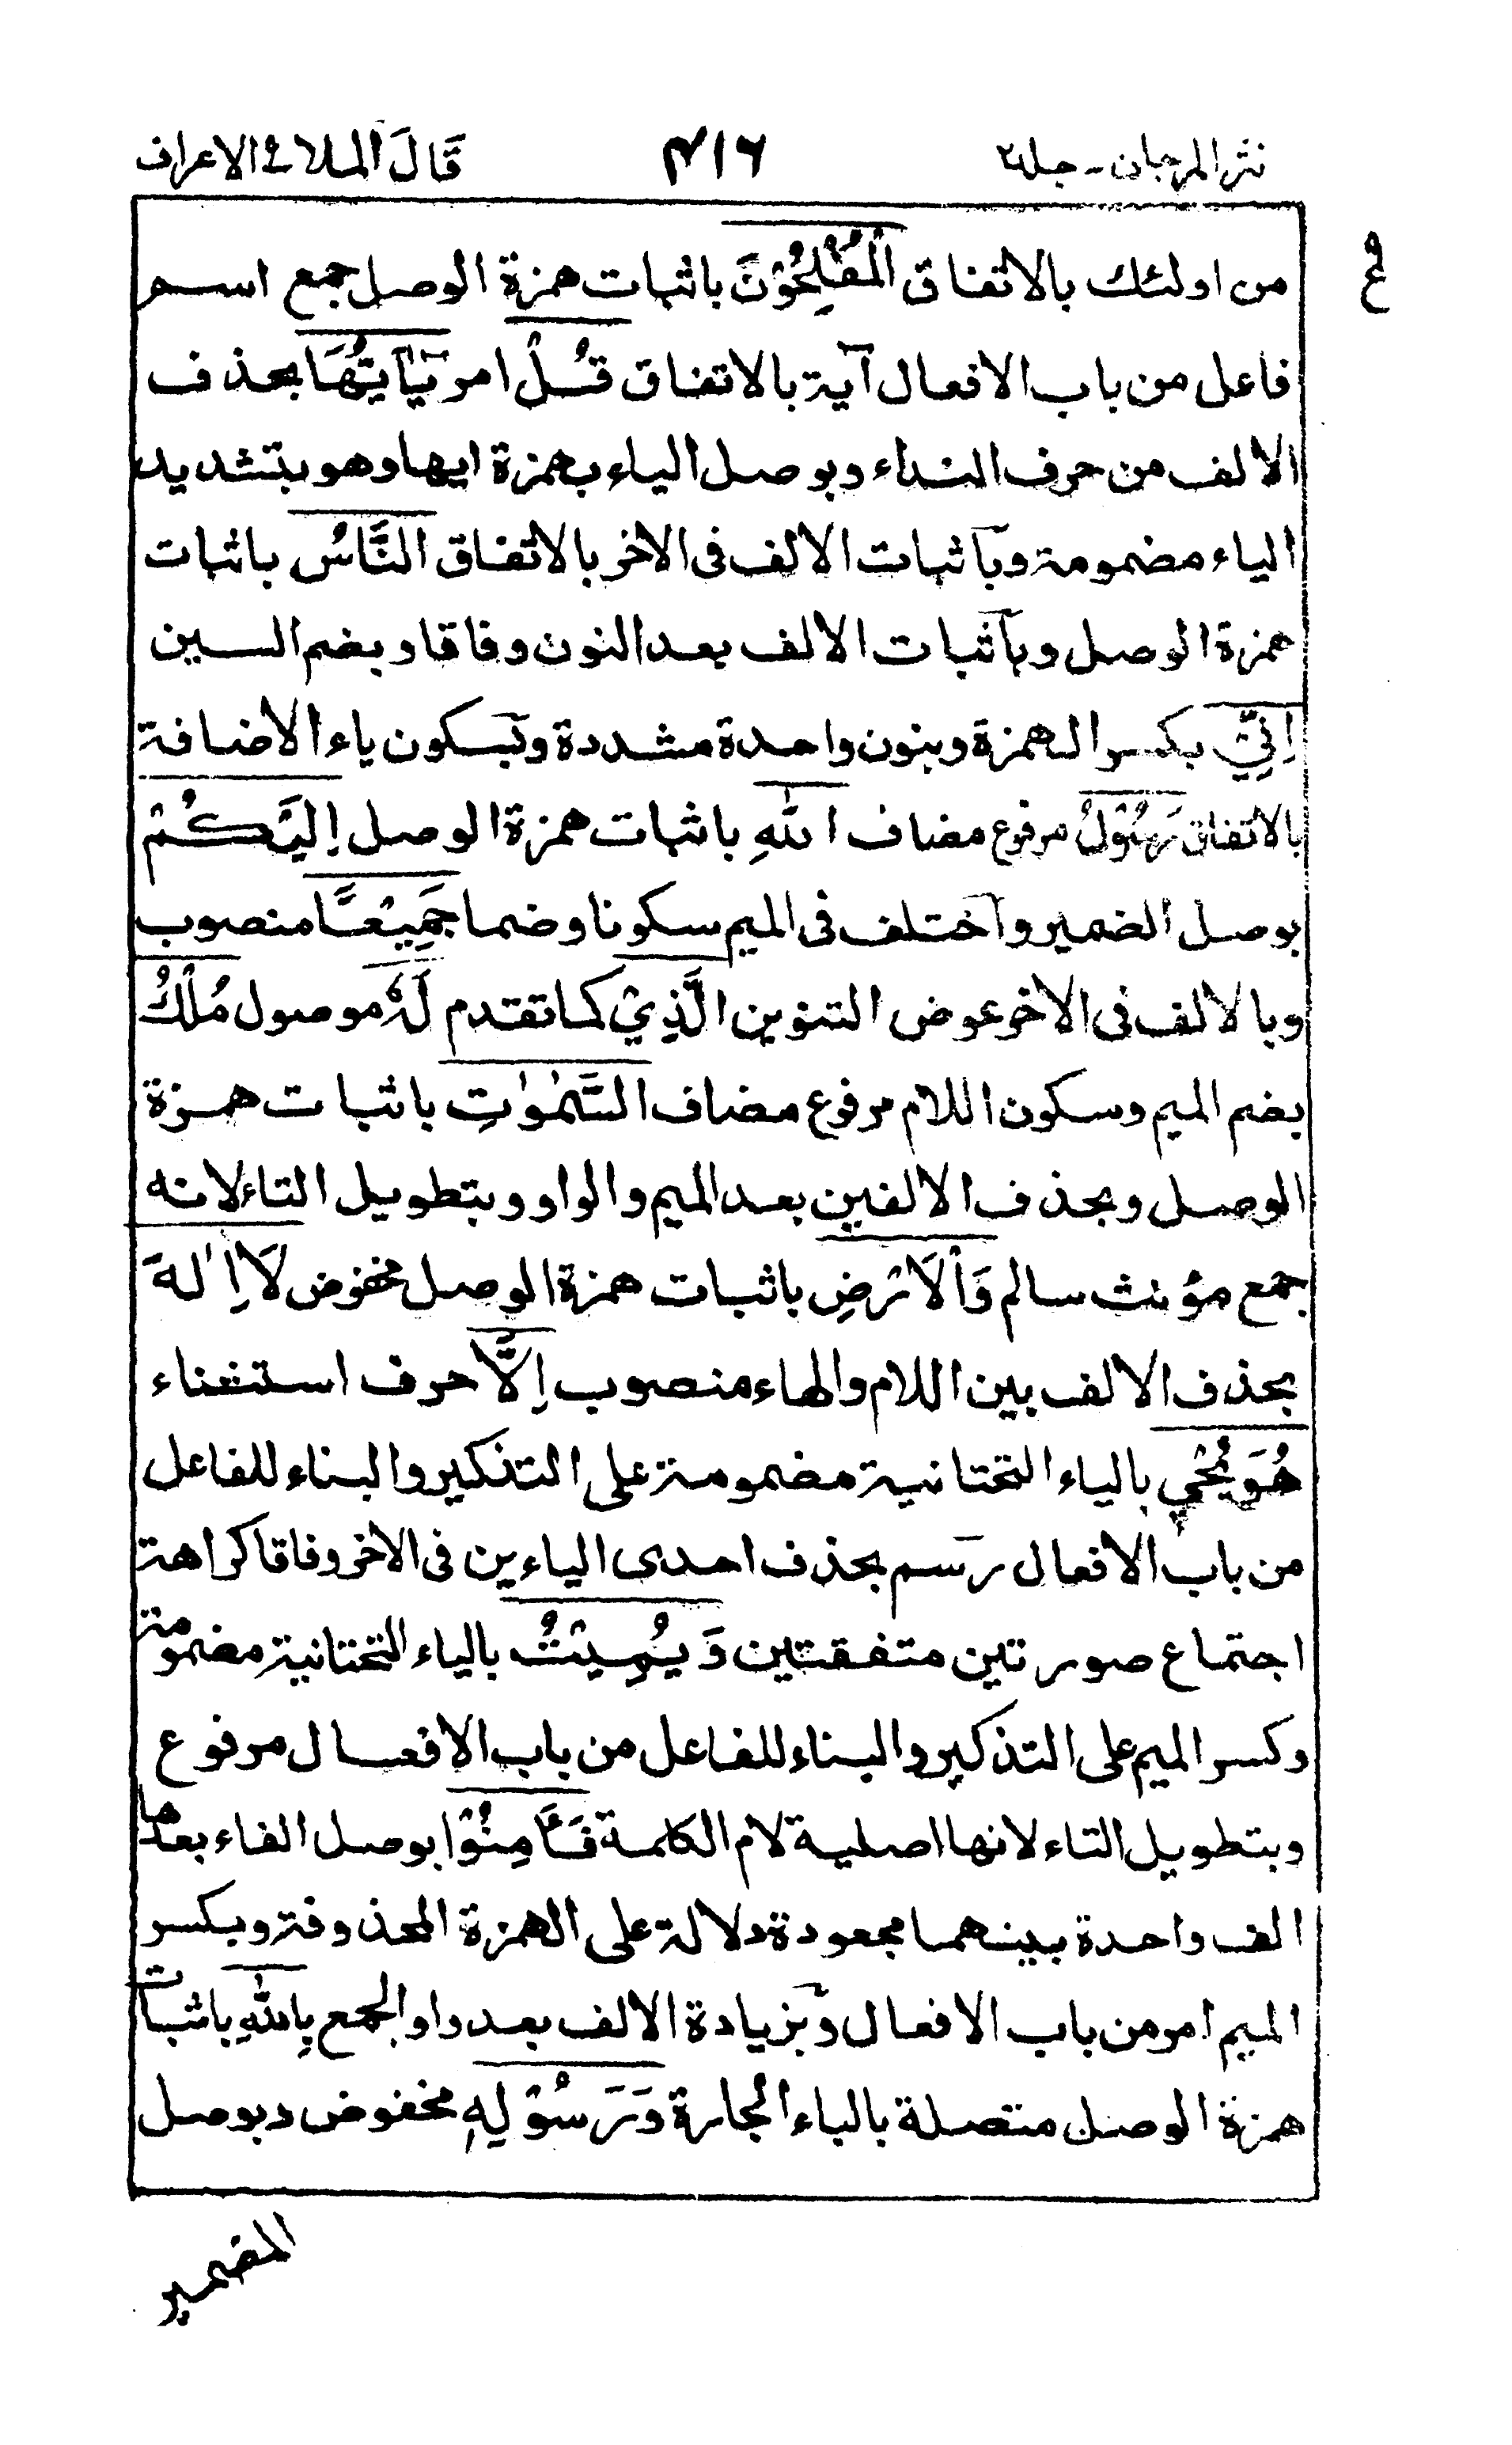 نثر المرجان - جلد ٢ ٤١٦ قَالَ الملا ٩ الاعراف
ع
من اولئك بالاتفاق الْمُفْلِحُوْنَ باثبات همزة الوصل جمع اسم
فاعل من باب الافعال آية بالاتفاق قُلْ امر يٰٓاَيُّهَا بحذف
الالف من حرف النداء وبوصل الياء بهمزة ايها وهو بتشديد
الياء مضمومة وباثبات الالف فى الاخر بالاتفاق النَّاسُ باثبات
همزة الوصل وباثبات الالف بعد النون وفاقا وبضم السين
اِنِّيْ بكسر الهمزة وبنون واحدة مشددة وبسكون ياء الاضافة
بالاتفاق رَسُوْلُ مرفوع مضاف اللّٰهِ باثبات همزة الوصل اِلَيْكُمْ
بوصل الضمير واختلف فى الميم سكونا وضما جَمِيْعًا منصوب
وبالالف فى الاخر عوض التنوين الَّذِيْ كما تقدم لَهٗ موصول مُلْكُ
بضم الميم وسكون اللام مرفوع مضاف السَّمٰوٰتِ باثبات همزة
الوصل وبحذف الالفين بعد الميم والواو وبتطويل التاء لانه
جمع مؤنث سالم وَالْاَرْضِ باثبات همزة الوصل مخفوض لَا اِلٰهَ
بحذف الالف بين اللام والهاء منصوب اِلَّا حرف استثناء
هُوَ يُحْيٖ بالياء التحتانية مضمومة على التذكير والبناء للفاعل
من باب الافعال رسم بحذف احدى الياءين فى الاخر وفاقا كراهة
اجتماع صورتين متفقتين وَيُمِيْتُ بالياء التحتانية مضمومة
وكسر الميم على التذكير والبناء للفاعل من باب الافعال مرفوع
وبتطويل التاء لانها اصلية لام الكلمة فَاٰمِنُوْا بوصل الفاء بعدها
الف واحدة بينهما مجعودة دلالة على الهمزة المحذوفة وبكسر
الميم امر من باب الافعال وبزيادة الالف بعد واو الجمع بِاللّٰهِ باثبات
همزة الوصل متصلة بالباء الجارة وَرَسُوْلِهِ مخفوض وبوصل
الضمير